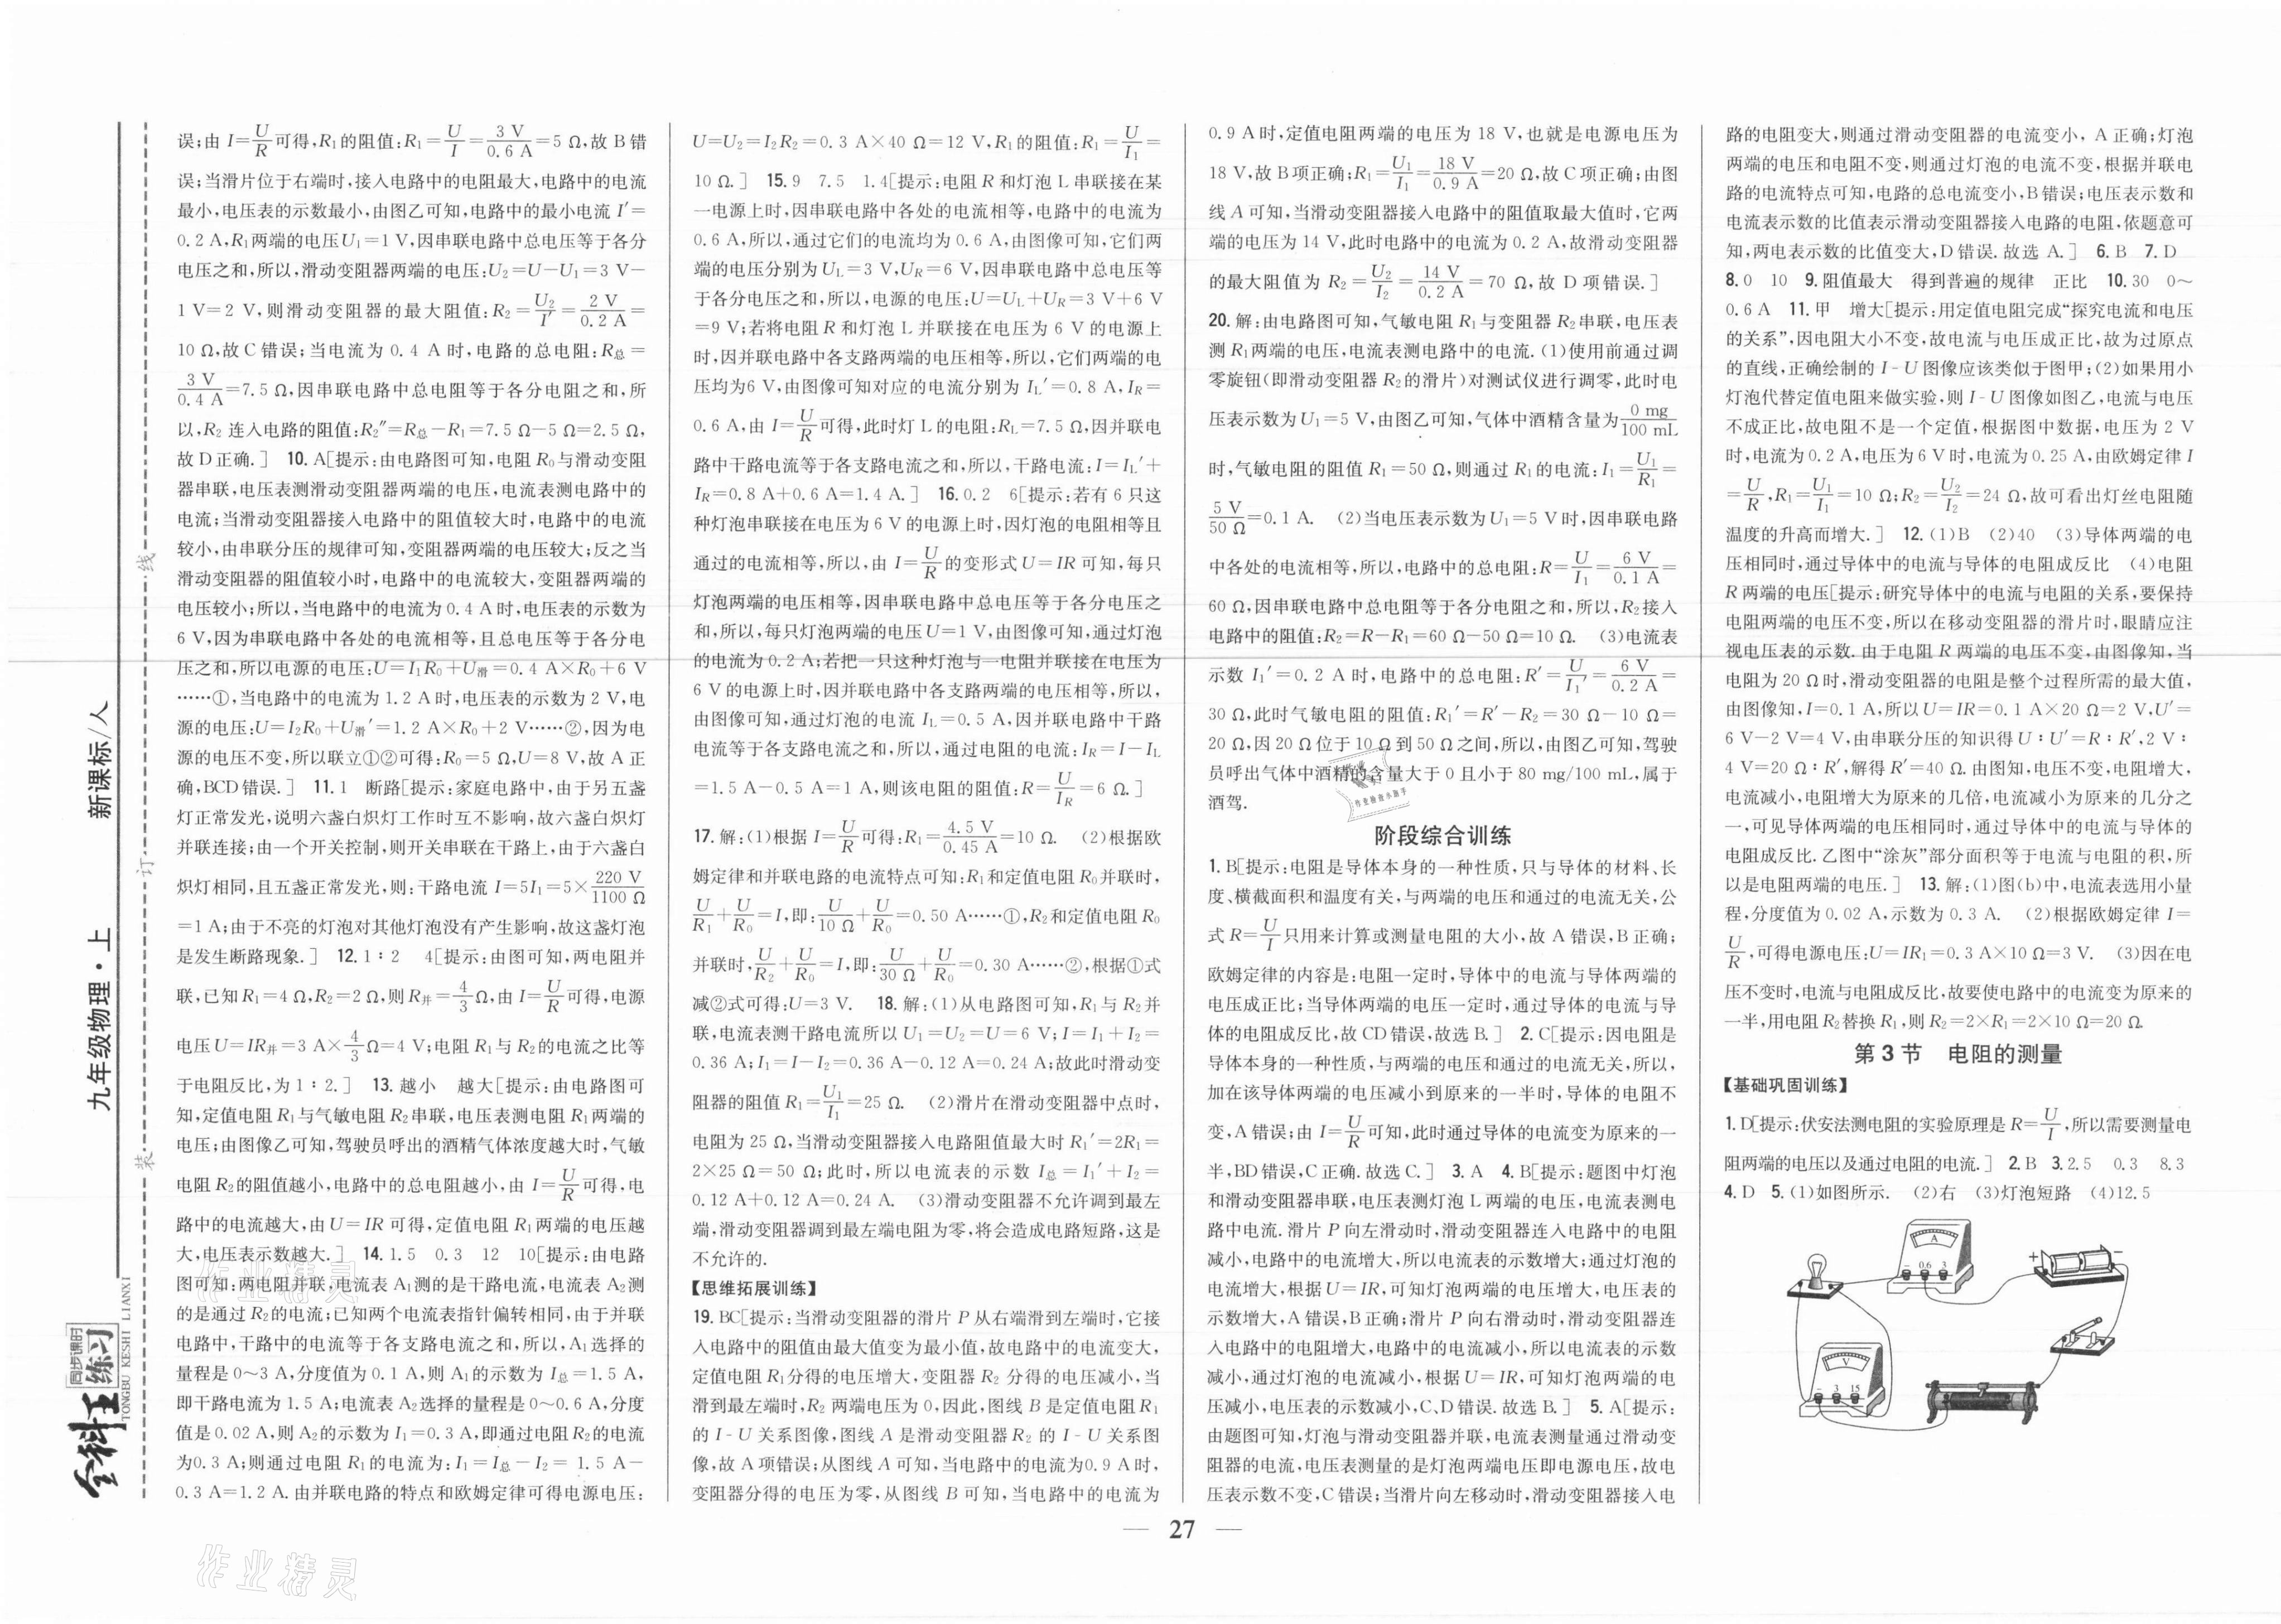 误;由 I=U/R 可得,R₁的阻值:R₁=U/I=3 V/0.6 A=5 Ω,故 B 错
误;当滑片位于右端时,接入电路中的电阻最大,电路中的电流
最小,电压表的示数最小,由图乙可知,电路中的最小电流 I′=
0.2 A,R₁两端的电压U₁=1 V,因串联电路中总电压等于各分
电压之和,所以,滑动变阻器两端的电压:U₂=U-U₁=3 V-
1 V=2 V,则滑动变阻器的最大阻值:R₂=U₂/I′=2 V/0.2 A=
10 Ω,故 C 错误;当电流为 0.4 A 时,电路的总电阻:R总=
3 V/0.4 A=7.5 Ω,因串联电路中总电阻等于各分电阻之和,所
以,R₂ 连入电路的阻值:R₂″=R总-R₁=7.5 Ω-5 Ω=2.5 Ω,
故 D 正确.] 10.A[提示:由电路图可知,电阻 R₀与滑动变阻
器串联,电压表测滑动变阻器两端的电压,电流表测电路中的
电流;当滑动变阻器接入电路中的阻值较大时,电路中的电流
较小,由串联分压的规律可知,变阻器两端的电压较大;反之当
滑动变阻器的阻值较小时,电路中的电流较大,变阻器两端的
电压较小;所以,当电路中的电流为 0.4 A 时,电压表的示数为
6 V,因为串联电路中各处的电流相等,且总电压等于各分电
压之和,所以电源的电压:U=I₁R₀+U滑=0.4 A×R₀+6 V
……①,当电路中的电流为 1.2 A 时,电压表的示数为 2 V,电
源的电压:U=I₂R₀+U滑′=1.2 A×R₀+2 V……②,因为电
源的电压不变,所以联立①②可得:R₀=5 Ω,U=8 V,故 A 正
确,BCD 错误.] 11.1 断路[提示:家庭电路中,由于另五盏
灯正常发光,说明六盏白炽灯工作时互不影响,故六盏白炽灯
并联连接;由一个开关控制,则开关串联在干路上,由于六盏白
炽灯相同,且五盏正常发光,则:干路电流 I=5I₁=5×220 V/1100 Ω
=1 A;由于不亮的灯泡对其他灯泡没有产生影响,故这盏灯泡
是发生断路现象.] 12.1∶2 4[提示:由图可知,两电阻并
联,已知R₁=4 Ω,R₂=2 Ω,则R并=4/3 Ω,由 I=U/R 可得,电源
电压U=IR并=3 A×4/3 Ω=4 V;电阻 R₁与 R₂的电流之比等
于电阻反比,为 1∶2.] 13.越小 越大[提示:由电路图可
知,定值电阻 R₁与气敏电阻 R₂串联,电压表测电阻 R₁两端的
电压;由图像乙可知,驾驶员呼出的酒精气体浓度越大时,气敏
电阻 R₂的阻值越小,电路中的总电阻越小,由 I=U/R 可得,电
路中的电流越大,由 U=IR 可得,定值电阻 R₁两端的电压越
大,电压表示数越大.] 14.1.5 0.3 12 10[提示:由电路
图可知:两电阻并联,电流表 A₁测的是干路电流,电流表 A₂测
的是通过 R₂的电流;已知两个电流表指针偏转相同,由于并联
电路中,干路中的电流等于各支路电流之和,所以,A₁选择的
量程是 0~3 A,分度值为 0.1 A,则 A₁的示数为 I总=1.5 A,
即干路电流为 1.5 A;电流表 A₂选择的量程是 0~0.6 A,分度
值是 0.02 A,则 A₂的示数为 I₁=0.3 A,即通过电阻 R₂的电流
为0.3 A;则通过电阻 R₁的电流为:I₁=I总-I₂= 1.5 A-
0.3 A=1.2 A.由并联电路的特点和欧姆定律可得电源电压:
U=U₂=I₂R₂=0.3 A×40 Ω=12 V,R₁的阻值:R₁=U/I₁=
10 Ω.] 15.9 7.5 1.4[提示:电阻 R 和灯泡 L 串联接在某
一电源上时,因串联电路中各处的电流相等,电路中的电流为
0.6 A,所以,通过它们的电流均为 0.6 A,由图像可知,它们两
端的电压分别为 UL=3 V,UR=6 V,因串联电路中总电压等
于各分电压之和,所以,电源的电压:U=UL+UR=3 V+6 V
=9 V;若将电阻 R 和灯泡 L 并联接在电压为 6 V 的电源上
时,因并联电路中各支路两端的电压相等,所以,它们两端的电
压均为6 V,由图像可知对应的电流分别为 IL′=0.8 A,IR=
0.6 A,由 I=U/R 可得,此时灯 L 的电阻:RL=7.5 Ω,因并联电
路中干路电流等于各支路电流之和,所以,干路电流:I=IL′+
IR=0.8 A+0.6 A=1.4 A.] 16.0.2 6[提示:若有 6 只这
种灯泡串联接在电压为 6 V 的电源上时,因灯泡的电阻相等且
通过的电流相等,所以,由 I=U/R 的变形式 U=IR 可知,每只
灯泡两端的电压相等,因串联电路中总电压等于各分电压之
和,所以,每只灯泡两端的电压U=1 V,由图像可知,通过灯泡
的电流为 0.2 A;若把一只这种灯泡与一电阻并联接在电压为
6 V 的电源上时,因并联电路中各支路两端的电压相等,所以,
由图像可知,通过灯泡的电流 IL=0.5 A,因并联电路中干路
电流等于各支路电流之和,所以,通过电阻的电流:IR=I-IL
=1.5 A-0.5 A=1 A,则该电阻的阻值:R=U/IR=6 Ω.]
17.解:(1)根据 I=U/R 可得:R₁=4.5 V/0.45 A=10 Ω. (2)根据欧
姆定律和并联电路的电流特点可知:R₁和定值电阻 R₀并联时,
U/R₁+U/R₀=I,即:U/10 Ω+U/R₀=0.50 A……①,R₂和定值电阻 R₀
并联时,U/R₂+U/R₀=I,即:U/30 Ω+U/R₀=0.30 A……②,根据①式
减②式可得:U=3 V. 18.解:(1)从电路图可知,R₁与 R₂并
联,电流表测干路电流所以 U₁=U₂=U=6 V;I=I₁+I₂=
0.36 A;I₁=I-I₂=0.36 A-0.12 A=0.24 A;故此时滑动变
阻器的阻值 R₁=U₁/I₁=25 Ω. (2)滑片在滑动变阻器中点时,
电阻为 25 Ω,当滑动变阻器接入电路阻值最大时 R₁′=2R₁=
2×25 Ω=50 Ω;此时,所以电流表的示数 I总=I₁′+I₂=
0.12 A+0.12 A=0.24 A. (3)滑动变阻器不允许调到最左
端,滑动变阻器调到最左端电阻为零,将会造成电路短路,这是
不允许的.
【思维拓展训练】
19.BC[提示:当滑动变阻器的滑片 P 从右端滑到左端时,它接
入电路中的阻值由最大值变为最小值,故电路中的电流变大,
定值电阻 R₁分得的电压增大,变阻器 R₂ 分得的电压减小,当
滑到最左端时,R₂ 两端电压为 0,因此,图线 B 是定值电阻 R₁
的 I-U 关系图像,图线 A 是滑动变阻器R₂ 的 I-U 关系图
像,故 A 项错误;从图线 A 可知,当电路中的电流为0.9 A 时,
变阻器分得的电压为零,从图线 B 可知,当电路中的电流为
0.9 A 时,定值电阻两端的电压为 18 V,也就是电源电压为
18 V,故 B 项正确;R₁=U₁/I₁=18 V/0.9 A=20 Ω,故 C 项正确;由图
线 A 可知,当滑动变阻器接入电路中的阻值取最大值时,它两
端的电压为 14 V,此时电路中的电流为 0.2 A,故滑动变阻器
的最大阻值为 R₂=U₂/I₂=14 V/0.2 A=70 Ω,故 D 项错误.]
20.解:由电路图可知,气敏电阻 R₁与变阻器 R₂串联,电压表
测 R₁两端的电压,电流表测电路中的电流.(1)使用前通过调
零旋钮(即滑动变阻器 R₂的滑片)对测试仪进行调零,此时电
压表示数为 U₁=5 V,由图乙可知,气体中酒精含量为 0 mg/100 mL
时,气敏电阻的阻值 R₁=50 Ω,则通过 R₁的电流:I₁=U₁/R₁=
5 V/50 Ω=0.1 A. (2)当电压表示数为U₁=5 V 时,因串联电路
中各处的电流相等,所以,电路中的总电阻:R=U/I₁=6 V/0.1 A=
60 Ω,因串联电路中总电阻等于各分电阻之和,所以,R₂接入
电路中的阻值:R₂=R-R₁=60 Ω-50 Ω=10 Ω. (3)电流表
示数 I₁′=0.2 A 时,电路中的总电阻:R′=U/I₁′=6 V/0.2 A=
30 Ω,此时气敏电阻的阻值:R₁′=R′-R₂=30 Ω-10 Ω=
20 Ω,因 20 Ω位于 10 Ω到 50 Ω之间,所以,由图乙可知,驾驶
员呼出气体中酒精的含量大于 0 且小于 80 mg/100 mL,属于
酒驾.
阶段综合训练
1.B[提示:电阻是导体本身的一种性质,只与导体的材料、长
度、横截面积和温度有关,与两端的电压和通过的电流无关,公
式 R=U/I 只用来计算或测量电阻的大小,故 A 错误,B 正确;
欧姆定律的内容是:电阻一定时,导体中的电流与导体两端的
电压成正比;当导体两端的电压一定时,通过导体的电流与导
体的电阻成反比,故 CD 错误,故选 B.] 2.C[提示:因电阻是
导体本身的一种性质,与两端的电压和通过的电流无关,所以,
加在该导体两端的电压减小到原来的一半时,导体的电阻不
变,A 错误;由 I=U/R 可知,此时通过导体的电流变为原来的一
半,BD 错误,C 正确.故选 C.] 3.A 4.B[提示:题图中灯泡
和滑动变阻器串联,电压表测灯泡 L 两端的电压,电流表测电
路中电流.滑片 P 向左滑动时,滑动变阻器连入电路中的电阻
减小,电路中的电流增大,所以电流表的示数增大;通过灯泡的
电流增大,根据 U=IR,可知灯泡两端的电压增大,电压表的
示数增大,A 错误,B 正确;滑片 P 向右滑动时,滑动变阻器连
入电路中的电阻增大,电路中的电流减小,所以电流表的示数
减小,通过灯泡的电流减小,根据 U=IR,可知灯泡两端的电
压减小,电压表的示数减小,C、D 错误.故选 B.] 5.A[提示:
由题图可知,灯泡与滑动变阻器并联,电流表测量通过滑动变
阻器的电流,电压表测量的是灯泡两端电压即电源电压,故电
压表示数不变,C 错误;当滑片向左移动时,滑动变阻器接入电
路的电阻变大,则通过滑动变阻器的电流变小,A 正确;灯泡
两端的电压和电阻不变,则通过灯泡的电流不变,根据并联电
路的电流特点可知,电路的总电流变小,B 错误;电压表示数和
电流表示数的比值表示滑动变阻器接入电路的电阻,依题意可
知,两电表示数的比值变大,D 错误.故选 A.] 6.B 7.D
8.0 10 9.阻值最大 得到普遍的规律 正比 10.30 0~
0.6 A 11.甲 增大[提示:用定值电阻完成“探究电流和电压
的关系”,因电阻大小不变,故电流与电压成正比,故为过原点
的直线,正确绘制的 I-U 图像应该类似于图甲;(2)如果用小
灯泡代替定值电阻来做实验,则 I-U 图像如图乙,电流与电压
不成正比,故电阻不是一个定值,根据图中数据,电压为 2 V
时,电流为 0.2 A,电压为 6 V 时,电流为 0.25 A,由欧姆定律 I
=U/R,R₁=U₁/I₁=10 Ω;R₂=U₂/I₂=24 Ω,故可看出灯丝电阻随
温度的升高而增大.] 12.(1)B (2)40 (3)导体两端的电
压相同时,通过导体中的电流与导体的电阻成反比 (4)电阻
R 两端的电压[提示:研究导体中的电流与电阻的关系,要保持
电阻两端的电压不变,所以在移动变阻器的滑片时,眼睛应注
视电压表的示数.由于电阻 R 两端的电压不变,由图像知,当
电阻为 20 Ω时,滑动变阻器的电阻是整个过程所需的最大值,
由图像知,I=0.1 A,所以 U=IR=0.1 A×20 Ω=2 V,U′=
6 V-2 V=4 V,由串联分压的知识得 U∶U′=R∶R′,2 V∶
4 V=20 Ω∶R′,解得 R′=40 Ω.由图知,电压不变,电阻增大,
电流减小,电阻增大为原来的几倍,电流减小为原来的几分之
一,可见导体两端的电压相同时,通过导体中的电流与导体的
电阻成反比.乙图中“涂灰”部分面积等于电流与电阻的积,所
以是电阻两端的电压.] 13.解:(1)图(b)中,电流表选用小量
程,分度值为 0.02 A,示数为 0.3 A. (2)根据欧姆定律 I=
U/R,可得电源电压:U=IR₁=0.3 A×10 Ω=3 V. (3)因在电
压不变时,电流与电阻成反比,故要使电路中的电流变为原来的
一半,用电阻 R₂替换 R₁,则 R₂=2×R₁=2×10 Ω=20 Ω.
第 3 节 电阻的测量
【基础巩固训练】
1.D[提示:伏安法测电阻的实验原理是 R=U/I,所以需要测量电
阻两端的电压以及通过电阻的电流.] 2.B 3.2.5 0.3 8.3
4.D 5.(1)如图所示. (2)右 (3)灯泡短路 (4)12.5
A
- 0.6 3
+ -
V
- 3 15
— 27 —
九年级物理·上 新课标/人
全科王
同步课时
练习
TONGBU KESHI LIANXI
装 订 线
作业精灵
作业精灵